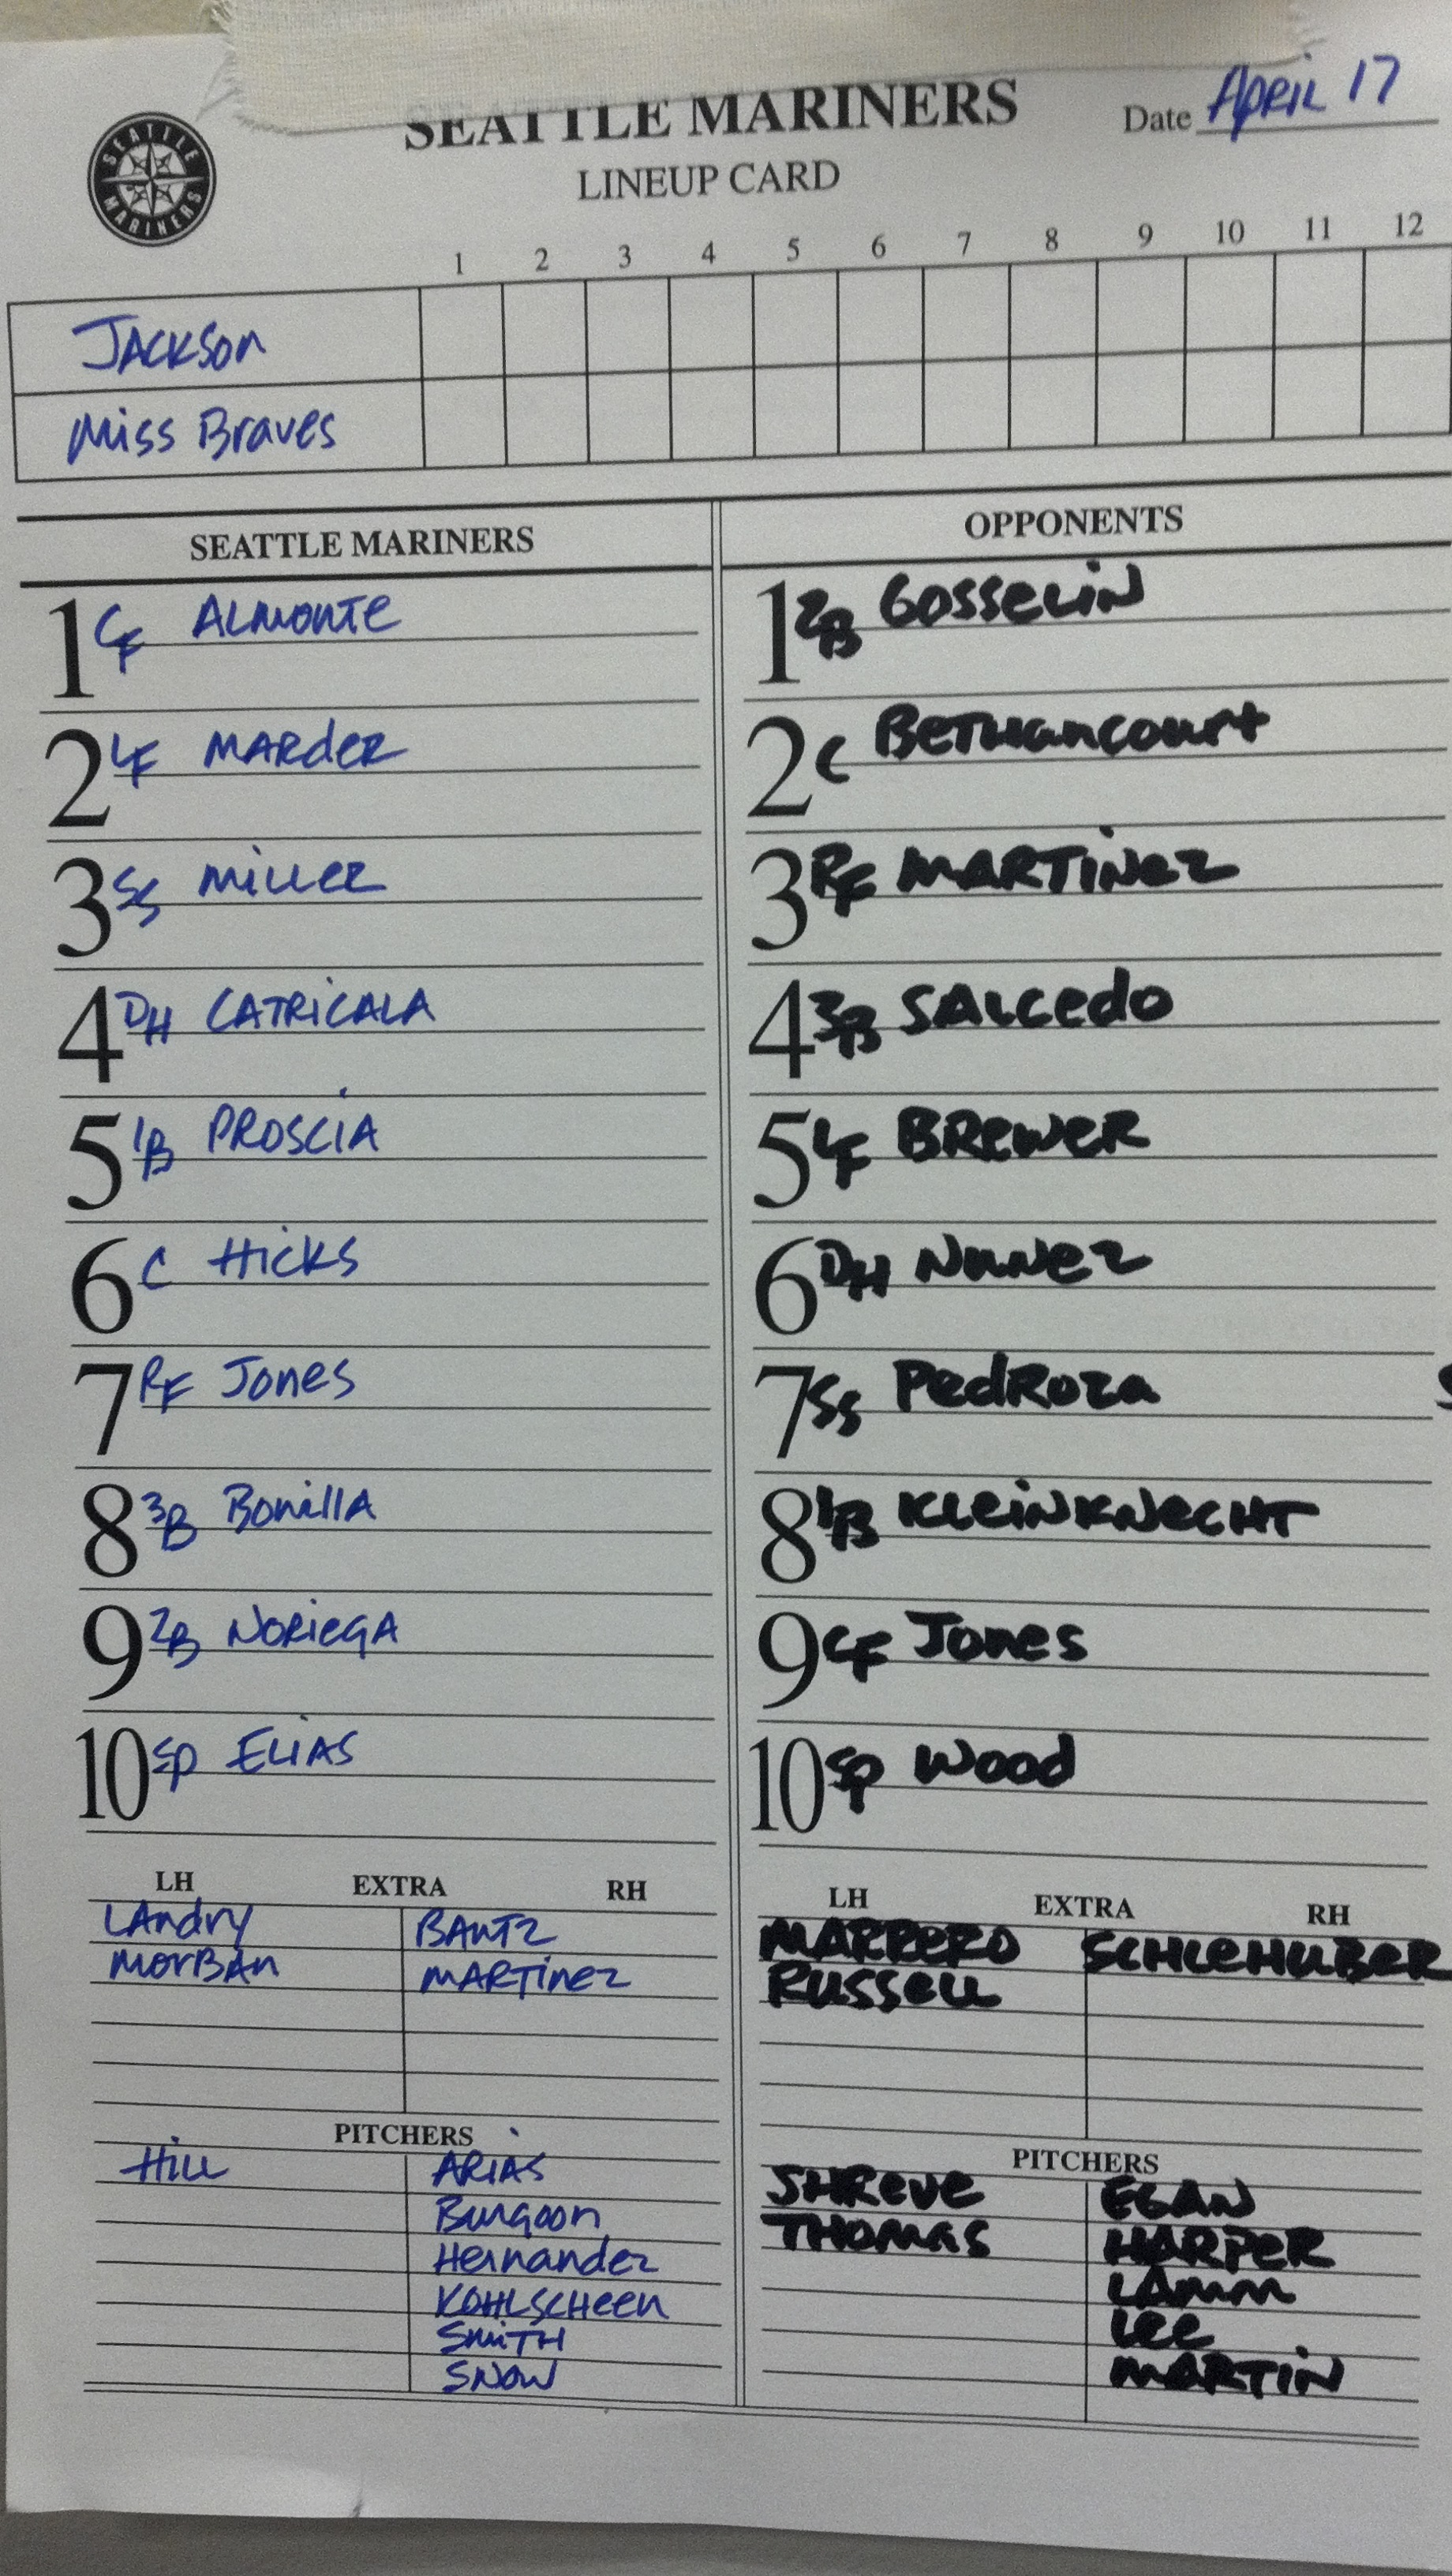 SEATTLE MARINERS
Date April 17
LINEUP CARD
SEATTLE MARINERS
1 2 3 4 5 6 7 8 9 10 11 12
JACKSON
Miss Braves
SEATTLE MARINERS
1 CF ALMONTE
2 LF MARDER
3 SS MILLER
4 DH CATRICALA
5 1B PROSCIA
6 C HICKS
7 RF Jones
8 3B BonillA
9 2B NORIEGA
10 SP ELIAS
LH EXTRA RH
LAndry BANTZ
MORBAN MARTINEZ
PITCHERS
HILL ARIAS
Burgoon
Hernandez
KOHLSCHEEN
SMITH
SNOW
OPPONENTS
1 2B GOSSELIN
2 C BETHANCOURT
3 RF MARTINEZ
4 3B SALCEDO
5 LF BREWER
6 DH NUNEZ
7 SS PEDROZA
8 1B KLEINKNECHT
9 CF Jones
10 SP Wood
LH EXTRA RH
MARRERO SCHLEHUBER
RUSSELL
PITCHERS
SHREVE EGAN
THOMAS HARPER
LAMM
Lee
MARTIN